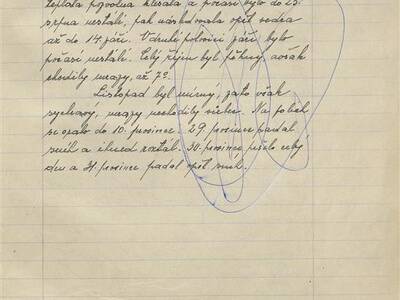 teplota pozvolna klesala a počasí bylo do 25.
srpna nestálé, pak následovala opět vedra
až do 14. září. V druhé polovici září bylo
počasí nestálé. Celý říjen byl pěkný, avšak
škodily mrazy, až 7°.
Listopad byl mírný, za to však
sychravý, mrazy neškodily
se opalo do 10. prosince. 29. prosince padal
sníh a ihned roztál. 30. prosince pršelo celý
den a 31. prosince padal opět sníh.